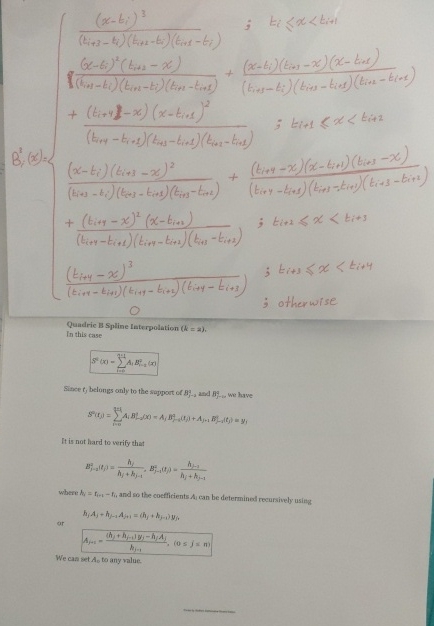 (x-tᵢ)³ / (tᵢ₊₃-tᵢ)(tᵢ₊₂-tᵢ)(tᵢ₊₁-tᵢ) ; tᵢ ≤ x < tᵢ₊₁
(x-tᵢ)²(tᵢ₊₂-x) / (tᵢ₊₃-tᵢ)(tᵢ₊₂-tᵢ)(tᵢ₊₂-tᵢ₊₁) + (x-tᵢ)(tᵢ₊₃-x)(x-tᵢ₊₁) / (tᵢ₊₃-tᵢ)(tᵢ₊₃-tᵢ₊₁)(tᵢ₊₂-tᵢ₊₁)
+ (tᵢ₊₄-x)(x-tᵢ₊₁)² / (tᵢ₊₄-tᵢ₊₁)(tᵢ₊₃-tᵢ₊₁)(tᵢ₊₂-tᵢ₊₁) ; tᵢ₊₁ ≤ x < tᵢ₊₂
Bᵢ³(x) =
(x-tᵢ)(tᵢ₊₃-x)² / (tᵢ₊₃-tᵢ)(tᵢ₊₃-tᵢ₊₁)(tᵢ₊₃-tᵢ₊₂) + (tᵢ₊₄-x)(x-tᵢ₊₁)(tᵢ₊₃-x) / (tᵢ₊₄-tᵢ₊₁)(tᵢ₊₃-tᵢ₊₁)(tᵢ₊₃-tᵢ₊₂)
+ (tᵢ₊₄-x)²(x-tᵢ₊₂) / (tᵢ₊₄-tᵢ₊₁)(tᵢ₊₄-tᵢ₊₂)(tᵢ₊₃-tᵢ₊₂) ; tᵢ₊₂ ≤ x < tᵢ₊₃
(tᵢ₊₄-x)³ / (tᵢ₊₄-tᵢ₊₁)(tᵢ₊₄-tᵢ₊₂)(tᵢ₊₄-tᵢ₊₃) ; tᵢ₊₃ ≤ x < tᵢ₊₄
0 ; otherwise
Quadric B Spline Interpolation (k = 2).
In this case
S²(x) = Σ Aᵢ B²ᵢ₋₂(x)
Since tⱼ belongs only to the support of B²ⱼ₋₂ and B²ⱼ₋₁, we have
S²(tⱼ) = Σ Aᵢ B²ᵢ₋₂(x) = Aⱼ B²ⱼ₋₂(tⱼ) + Aⱼ₊₁ B²ⱼ₋₁(tⱼ) = yⱼ
It is not hard to verify that
B²ⱼ₋₂(tⱼ) = hⱼ / (hⱼ + hⱼ₋₁), B²ⱼ₋₁(tⱼ) = hⱼ₋₁ / (hⱼ + hⱼ₋₁)
where hᵢ = tᵢ₊₁ - tᵢ, and so the coefficients Aᵢ can be determined recursively using
hⱼ Aⱼ + hⱼ₋₁ Aⱼ₊₁ = (hⱼ + hⱼ₋₁) yⱼ,
or
Aⱼ₊₁ = ((hⱼ + hⱼ₋₁) yⱼ - hⱼ Aⱼ) / hⱼ₋₁, (0 ≤ j ≤ n)
We can set A₀ to any value.